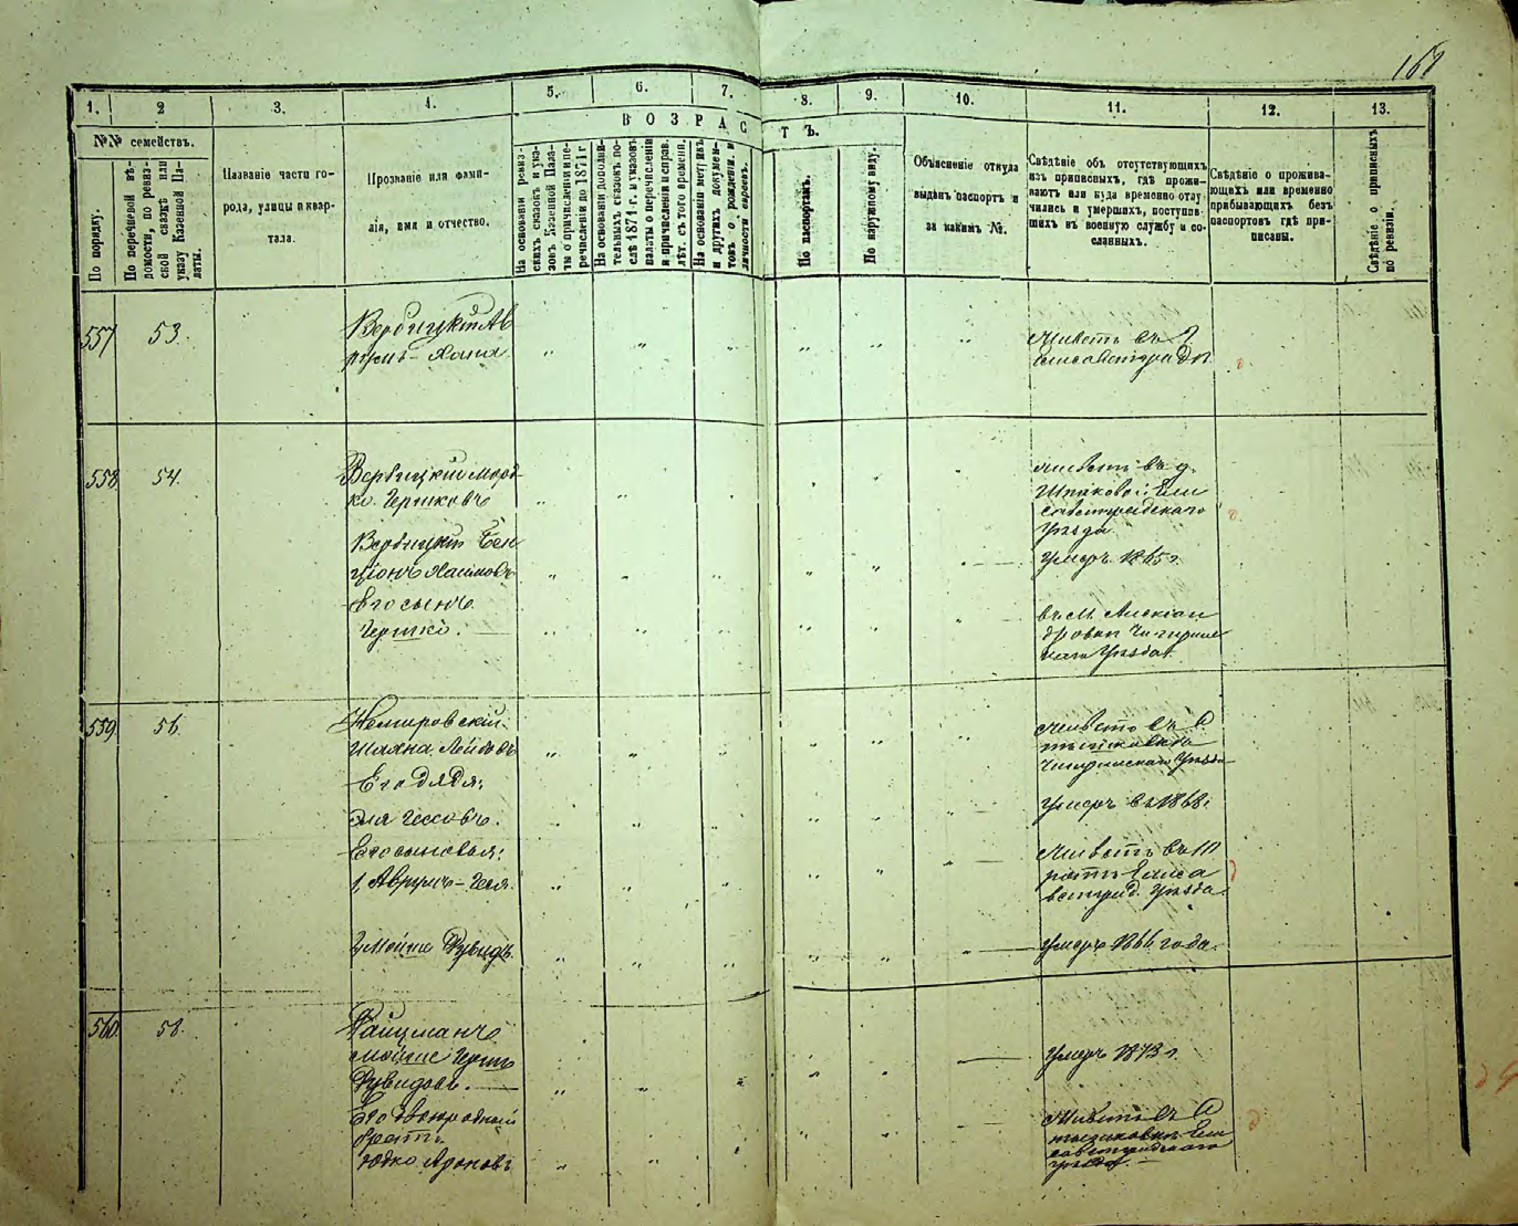 1. 2 3. 4. 5. 6. 7. 8. 9. 10. 11. 12. 13.
№№ семействъ.
В О З Р А С Т Ъ.
По порядку.
По перечневой вѣ-
домости, по ревиз-
ской сказкѣ или
указу Казенной Па-
латы.
Названіе части го-
рода, улицы и квар-
тала.
Прозваніе или фами-
лія, имя и отчество.
На основаніи ревиз-
скихъ сказокъ и ука-
зовъ Казенной Пала-
ты о причисленіи и пе-
речисленіи до 1871 г
На основаніи дополни-
тельныхъ сказокъ по-
слѣ 1871 г. и указовъ
палаты о перечисленіи
и причисленіи и исправ.
лѣт. съ того времени.
На основаніи метрикъ
и другихъ докумен-
товъ о рожденіи и
личности евреевъ.
По паспортамъ.
По наружному виду.
Объясненіе откуда
выданъ паспортъ и
за какимъ №.
Свѣдѣніе объ отсутствующихъ
изъ приписныхъ, гдѣ прожи-
ваютъ или куда временно отлу-
чились и умершихъ, поступив-
шихъ въ военную службу и со-
сланныхъ.
Свѣдѣніе о прожива-
ющихъ или временно
прибывающихъ безъ
паспортовъ гдѣ при-
писаны.
Свѣдѣніе о приписныхъ
по ревизіи.
557 53.
Вербицкій Ав
румъ-Хаимъ
Живетъ въ г.
Елисаветградѣ
558. 54.
Вербицкій Морд-
ко Гершковъ
Живетъ въ д.
Шпаковой Ели
саветградскаго
Уѣзда
Вербицкій Бен
ціонъ Хаимовъ
Умеръ 1865 г.
Его сынъ
Гершко.
въ М. Алексан
дровкѣ Чигирин
скаго Уѣзда
559. 56.
Немировскій
Шахна Лейбовъ
Живетъ въ С
Чигиринскаго Уѣзда
Его дядя:
Эля
Умеръ въ 1868 г.
Его сыновья:
1, Аврумъ-
Живетъ въ
Елиса
ветград. Уѣзда.
2 Мойше Дувидъ.
Умеръ 1866 года.
560. 58.
Райцманъ
Мойше Гершъ
Дувидовъ.
Умеръ 1873 г.
Его двоюродный
братъ
Юдко Ароновъ
Живетъ въ С
Ели
саветградскаго
уѣзда.